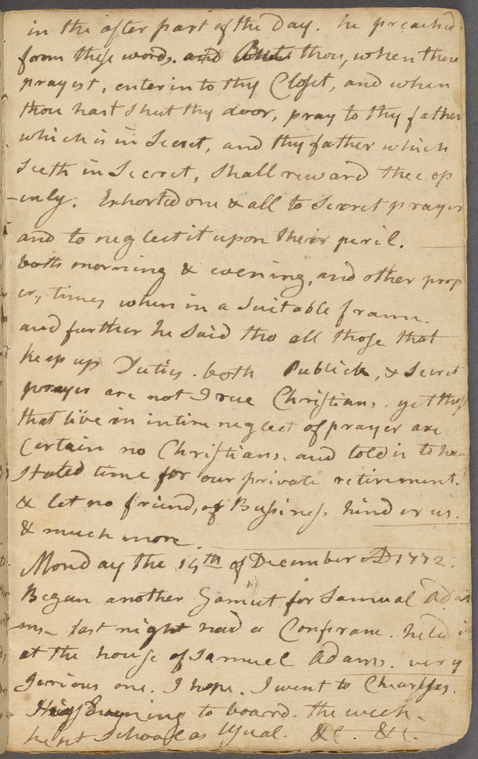 in the after part of the Day. he preached
from these words. and But thou, when thou
prayest, enter in to thy Closet, and when
thou hast shut thy door, pray to thy father
which is in Secret, and thy father which
Seeth in Secret, Shall reward thee op
-enly. Exhorted one & all to Secret prayer
and to neglect it upon their peril.
both morning & evening, and other prop
er, times when in a Suitable frame.
and further he Said tho all those that
keep up Duties. both Publick, & Secret
prayer are not True Christians. yet those
that live in intire neglect of prayer are
Certain no Christians. and told us to have
Stated time for our private retirement.
& let no friend, or Business. hinder us.
& much more
Monday the 14th of December AD 1772.
Began another Gamut for Samual Ad
ms- last night had a Conferance. held
at the house of Samuel Adams. very
Serious one. I hope. I went to
Evening to board. the week.
kept School as Usual. &C. &C.